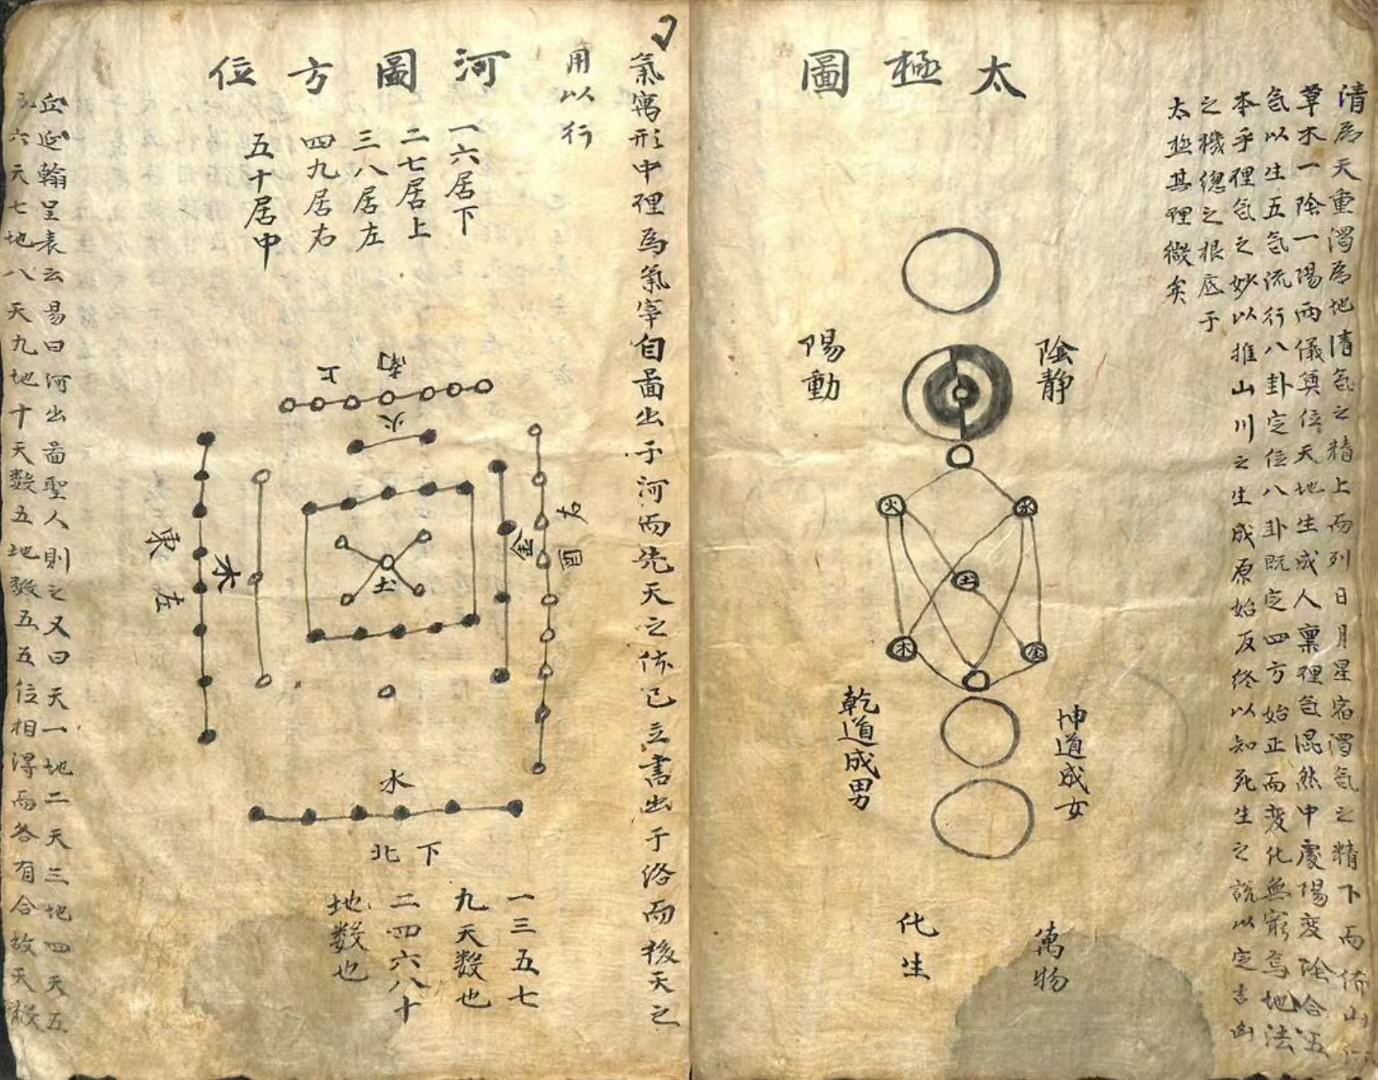 清為天重濁為地清氣之精上而列日月星宿濁氣之精下而侨山
草木一陰一陽兩儀奠位天地生成人稟理氣混然中處陽变陰合五
氣以生五氣流行八卦定位八卦既定四方始正而变化無窮焉地法
本乎理氣之妙以推山川之生成原始反終以知死生之説以定吉凶
之機總之根底于
太極其理微矣
太極圖
陰靜
陽動
火
水
土
木
金
坤道成女
乾道成男
萬物
化生
氣寓形中理為氣宰自啚出于河而先天之体已立書出于洛而後天之
用以行
河圖方位
一六居下
二七居上
三八居左
四九居右
五十居中
南
上
火
右
四
金
土
木
東
左
水
下
北
一三五七
九天数也
二四六八十
地数也
丘延翰呈表云易曰河出啚聖人則之又曰天一地二天三地四天五
六天七地八天九地十天数五地数五五位相得而各有合故天数